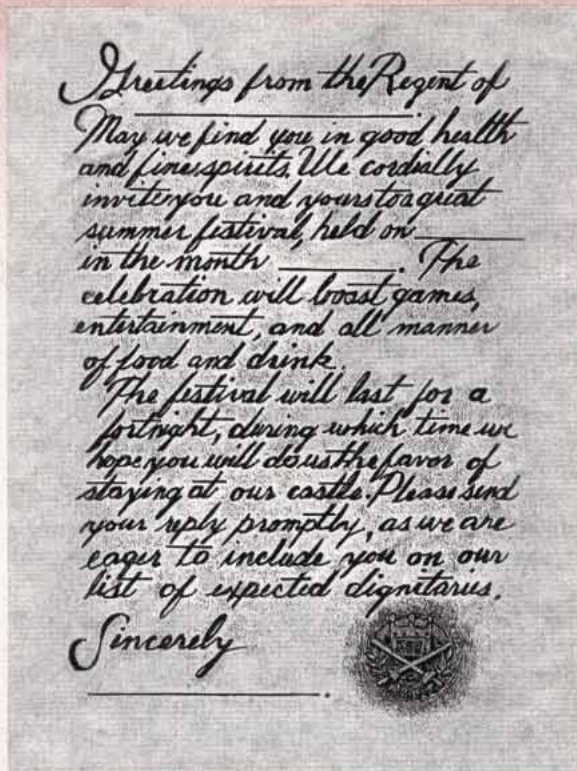 Greetings from the Regent of
____________________.
May we find you in good health
and fine spirits. We cordially
invite you and yours to a great
summer festival, held on ________
in the month ________. The
celebration will boast games,
entertainment, and all manner
of food and drink.
The festival will last for a
fortnight, during which time we
hope you will do us the favor of
staying at our castle. Please send
your reply promptly, as we are
eager to include you on our
list of expected dignitaries.
Sincerely
____________________.